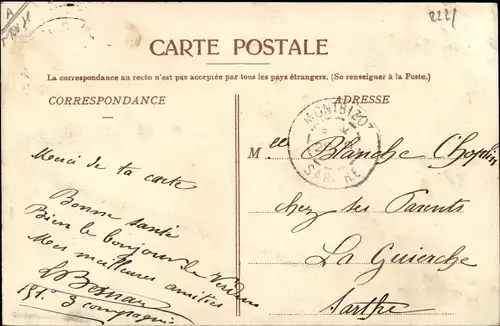 CARTE POSTALE
La correspondance au recto n'est pas acceptée par tous les pays étrangers. (Se renseigner à la Poste.)
CORRESPONDANCE
ADRESSE
MONTBIZOT
SARTHE
Merci de ta carte
Bonne santé
Bien le bonjour de Verdun
Mes meilleures amitiés
3 compagnie
Melle Blanche Choplin
chez ses Parents
La Guierche
Sarthe